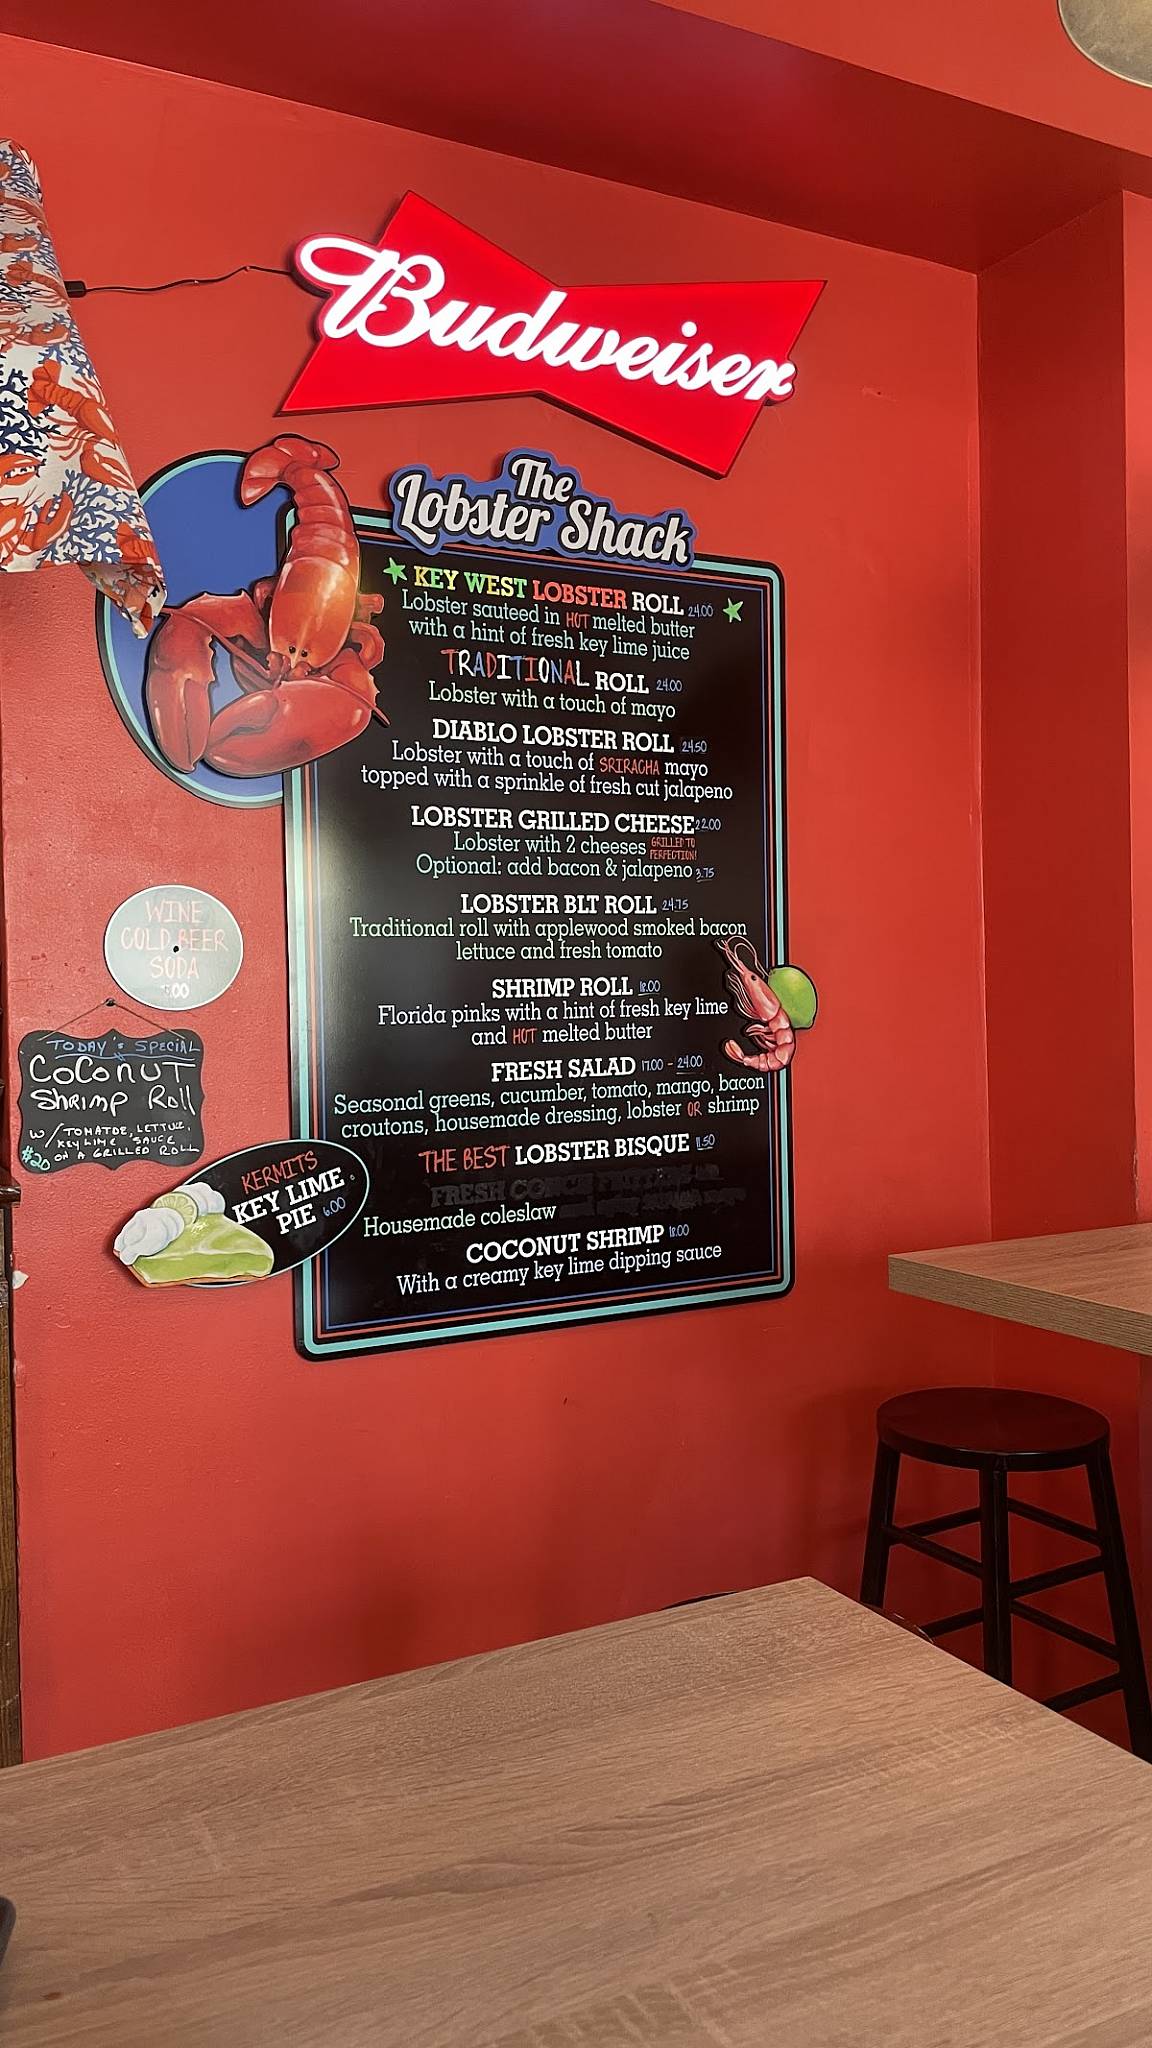 Budweiser
The
Lobster Shack
KEY WEST LOBSTER ROLL 24.00
Lobster sauteed in HOT melted butter
with a hint of fresh key lime juice
TRADITIONAL ROLL 24.00
Lobster with a touch of mayo
DIABLO LOBSTER ROLL 24.50
Lobster with a touch of SRIRACHA mayo
topped with a sprinkle of fresh cut jalapeno
LOBSTER GRILLED CHEESE 22.00
Lobster with 2 cheeses GRILLED TO
PERFECTION!
Optional: add bacon & jalapeno 3.75
LOBSTER BLT ROLL 24.75
Traditional roll with applewood smoked bacon
lettuce and fresh tomato
SHRIMP ROLL 18.00
Florida pinks with a hint of fresh key lime
and HOT melted butter
FRESH SALAD 17.00 - 24.00
Seasonal greens, cucumber, tomato, mango, bacon
croutons, housemade dressing, lobster OR shrimp
THE BEST LOBSTER BISQUE 11.50
FRESH CONCH FRITTERS
Housemade coleslaw
COCONUT SHRIMP 18.00
With a creamy key lime dipping sauce
WINE
COLD BEER
SODA
TODAY'S SPECIAL
COCONUT
SHRIMP ROLL
W/ TOMATOE, LETTUCE,
KEY LIME SAUCE
$20 ON A GRILLED ROLL
KERMITS
KEY LIME
PIE 6.00